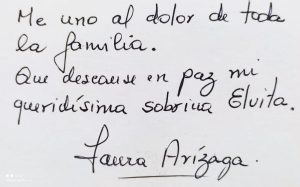 Me uno al dolor de toda
la familia.
Que descanse en paz mi
queridísima sobrina Elvita.
Laura Arízaga.